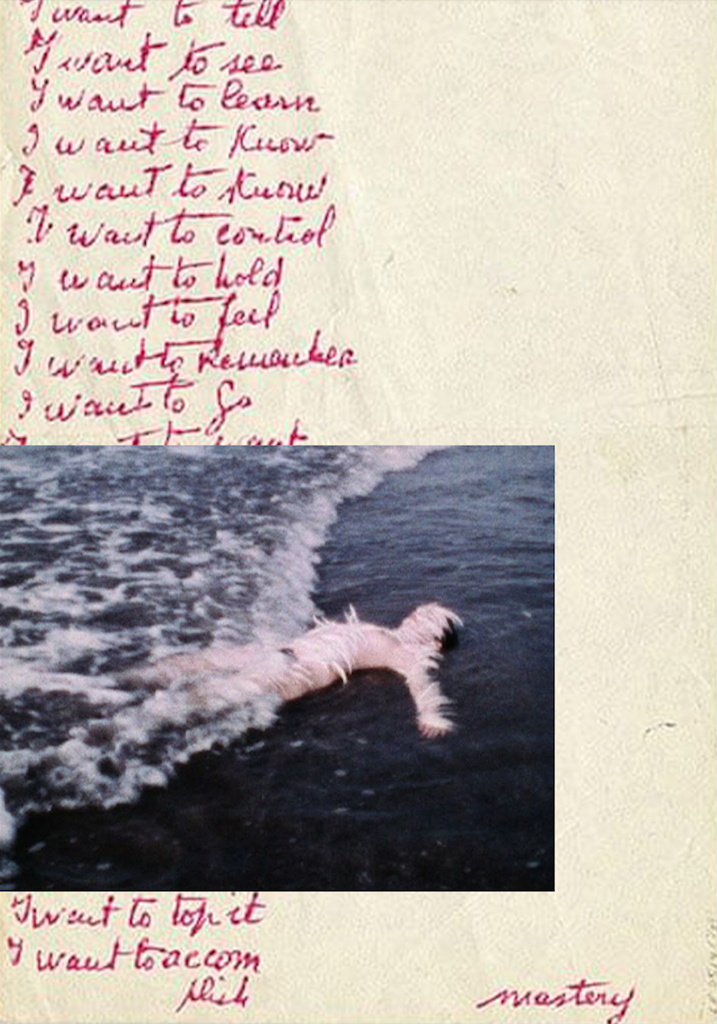 I want to tell
I want to see
I want to learn
I want to Know
I want to Know
I want to control
I want to hold
I want to feel
I want to Remember
I want to Go
want
I want to top it
I want to accom
plish
mastery